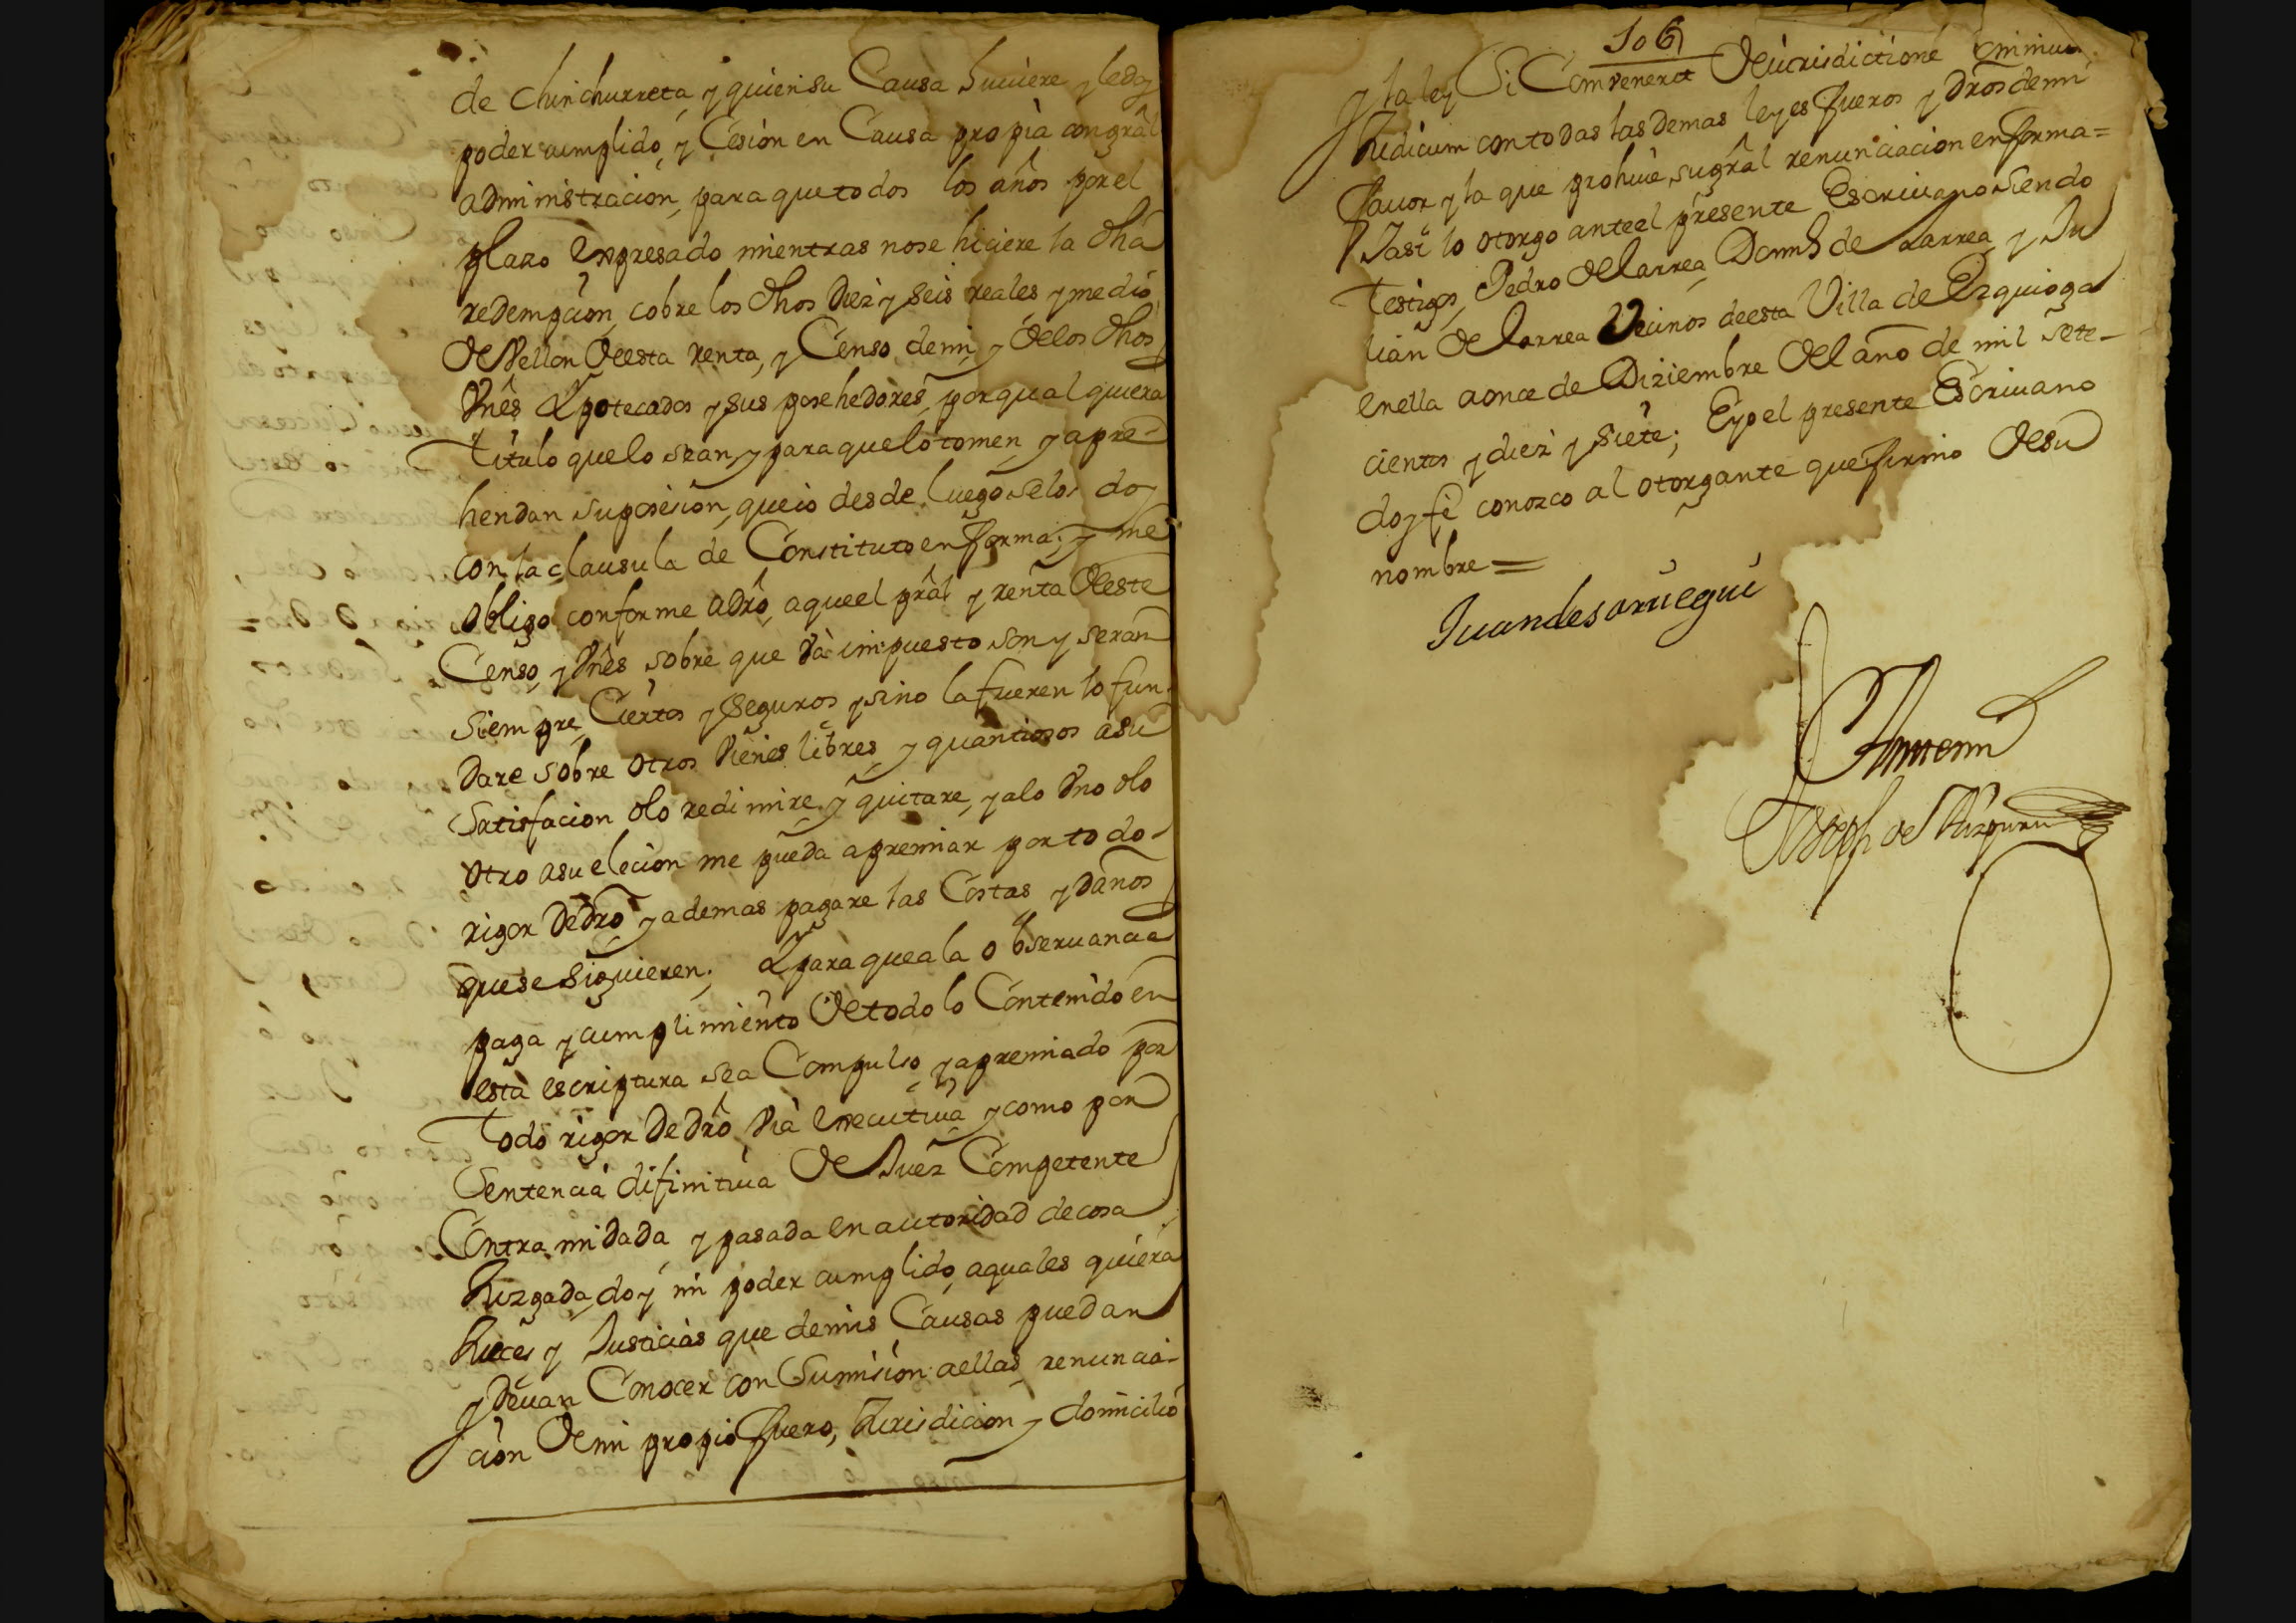 de Chinchurreta, y quien su Causa huuiere y le doy
poder cumplido, y Cesion en Causa propia con grâl
administracion, para que todos los años por el
plazo expresado mientras no se hiciere la dha
redempcion, cobre los dhos Diez y seis reales y medio
de Vellon de esta renta, y Censo, de mi, y de los dhos
vnês Ypotecados y sus posehedores, por qualquiera
Titulo que lo sean, y para que lo tomen, y apre-
hendan su posesion, que io desde luego se los doy
con la clausula de Constituto en forma; y me
obligo conforme a drô, a que el prâl y renta de este
Censo, y vnês sobre que và impuesto son y seran
siempre Ciertos y Seguros y sino la fueren lo fun-
dare sobre otros vienes libres, y quantiosos a su
Satisfacion o lo redimire, y quitare, y a lo vno o lo
otro a su elecion me pueda apremiar por todo
rigor de drô y ademas pagare las Costas y daños
que se siguieren; Y para que a la obseruancia
paga y cumplimiento de todo lo Contenido en
esta escriptura sea Compulso, y apremiado por
Todo rigor de drô, via executiua, y como por
Sentencia difinitiua de Juez Competente
Contra mi dada, y pasada en autoridad de cosa
Juzgada, doy mi poder cumplido, a quales quiera
Jueces y Justicias que de mis Causas puedan
y deuan Conocer con Sumision a ellas, renuncia-
cion de mi propio fuero, Jurisdicion, y domicilio
106
y la ley Si Convenerit De iurisdictione omnium
Judicum con todas las demas leyes fueros y drôs de mi
fauor y la que prohiue su grâl renunciacion en forma=
Y asi lo otorgo ante el presente Escriuano siendo
Testigos, Pedro de Larrea, Domˢ de Larrea, y Ju
lian de Larrea Vecinos de esta Villa de Ezquioga
en ella a once de Diziembre del año de mil sete-
cientos y diez y siete; E yo el presente Escriuano
doy fe conozco al otorgante que firmo de su
nombre=
Juan de saruegui
Antemi
Joseph de Aizpuru